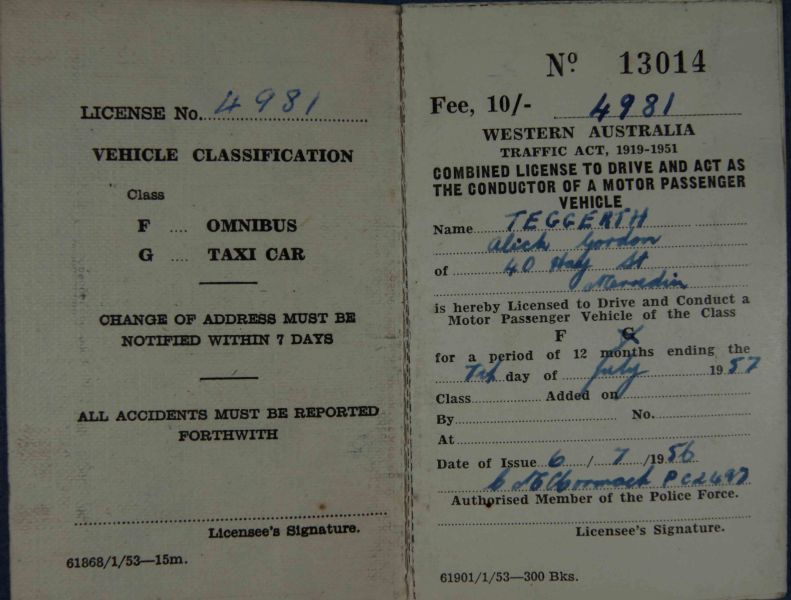 LICENSE No. 4981
VEHICLE CLASSIFICATION
Class
F .... OMNIBUS
G .... TAXI CAR
CHANGE OF ADDRESS MUST BE
NOTIFIED WITHIN 7 DAYS
ALL ACCIDENTS MUST BE REPORTED
FORTHWITH
Licensee's Signature.
61868/1/53—15m.
Nº 13014
Fee, 10/- 4981
WESTERN AUSTRALIA
TRAFFIC ACT, 1919-1951
COMBINED LICENSE TO DRIVE AND ACT AS
THE CONDUCTOR OF A MOTOR PASSENGER
VEHICLE
Name TEGGERTH
Alick Gordon
of 40 Hay St
Merredin
is hereby Licensed to Drive and Conduct a
Motor Passenger Vehicle of the Class
F G
for a period of 12 months ending the
7th day of July 1957
Class Added on
By No.
At
Date of Issue 6 / 7 /1956
C McCormack PC2497
Authorised Member of the Police Force.
Licensee's Signature.
61901/1/53—300 Bks.